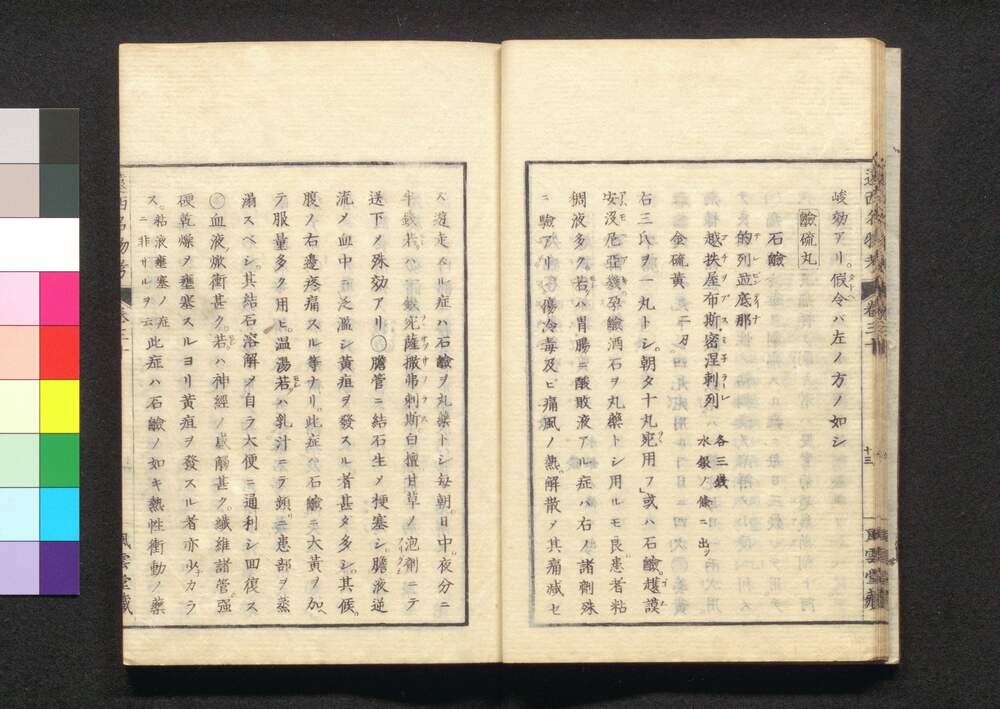 峻効アリ。假令バ左ノ方ノ如シ
鹼硫丸
石鹼
的列並底那
越扶屋布斯密涅刺列 各三錢 水銀ノ條ニ出ヅ
金硫黄 二匁
右三氏ヲ一丸トシ。朝夕十丸宛用フ」或ハ石鹼。越謨
安沒尼亞孕鹼酒石ヲ丸藥トシ用ルモ良。患者粘
稠液多ク若ハ胃腸ニ酸敗液アル症ハ右ノ諸劑殊
ニ驗アリ。傷冷毒及ビ痛風ノ熱。解散メ其痛減セ
十三
風雲堂藏
ズ遊走スル症ハ石鹼ヲ丸藥トシ毎朝。日中。夜分ニ
送下メ殊効アリ○膽管ニ結石生メ梗塞シ。膽液逆
流メ血中ニ泛濫シ黄疸ヲ發スル者甚タ多シ。其候。
腹ノ右邊疼痛スル等ナリ。此症ハ石鹼ニ大黄ヲ加ヘ
テ服量多ク用ヒ。温湯若ハ乳汁ニヲ頻ニ患部ヲ蒸
溺スベシ。其結石溶解メ自ラ大便ニ通利シ四復ス
○血液焮衝甚ク。若ハ神經ノ感觸甚ク。纖維諸管强
硬乾燥ヲ壅塞スルヨリ黄疸ヲ發スル者亦少カラ
ス。粘液壅塞ノ症ニ非サルヲ云 此症ハ石鹼ノ如キ熱性衝動ノ藥
遠西名物考
風雲堂藏